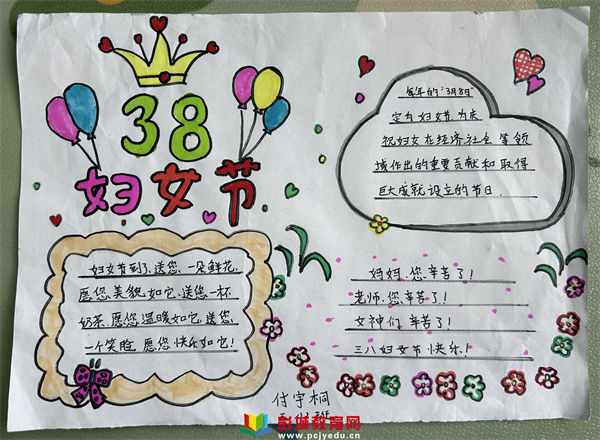 38
妇女节
每年的"3月8日"
定为妇女节为庆
祝妇女在经济社会等领
域作出的重要贡献和取得
巨大成就设立的节日.
妇女节到了,送您一朵鲜花,
愿您美貌如它,送您一杯
奶茶,愿您温暖如它,送您
一个笑脸,愿您快乐如它!
妈妈,您辛苦了!
老师,您辛苦了!
女神们,辛苦了!
三八妇女节快乐!
付宇桐
班
彭城教育网
www.pcjyedu.cn